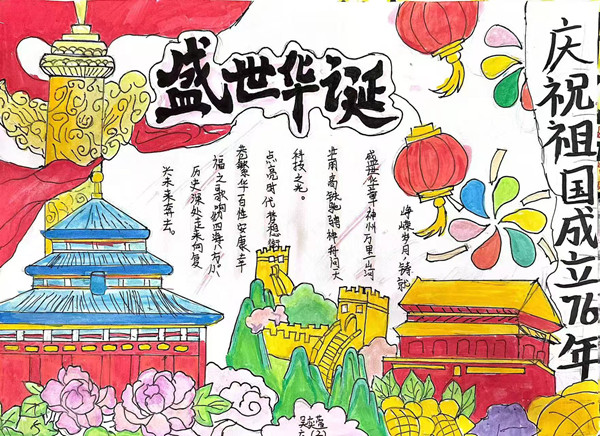 盛世华诞
庆祝祖国成立76年
峥嵘岁月铸就
盛世华章神州万里山河
高铁驰骋神舟问天
科技之光。
点亮时代梦想
卷繁华百姓安康幸
福之歌响彻四海八方从
历史深处走来向复
兴未来奔去。